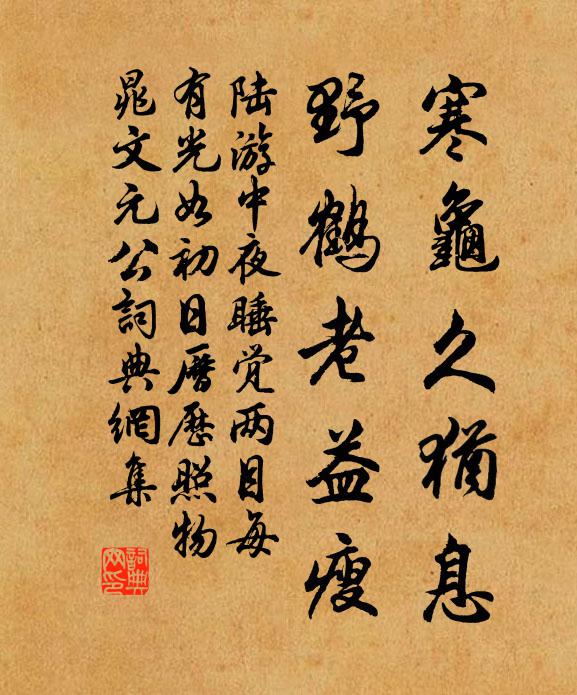 寒龜久猶息
野鶴老益瘦
陆游中夜睡觉两目每
有光如初日曆歷照物
晁文元公詞典網集
詞典網印